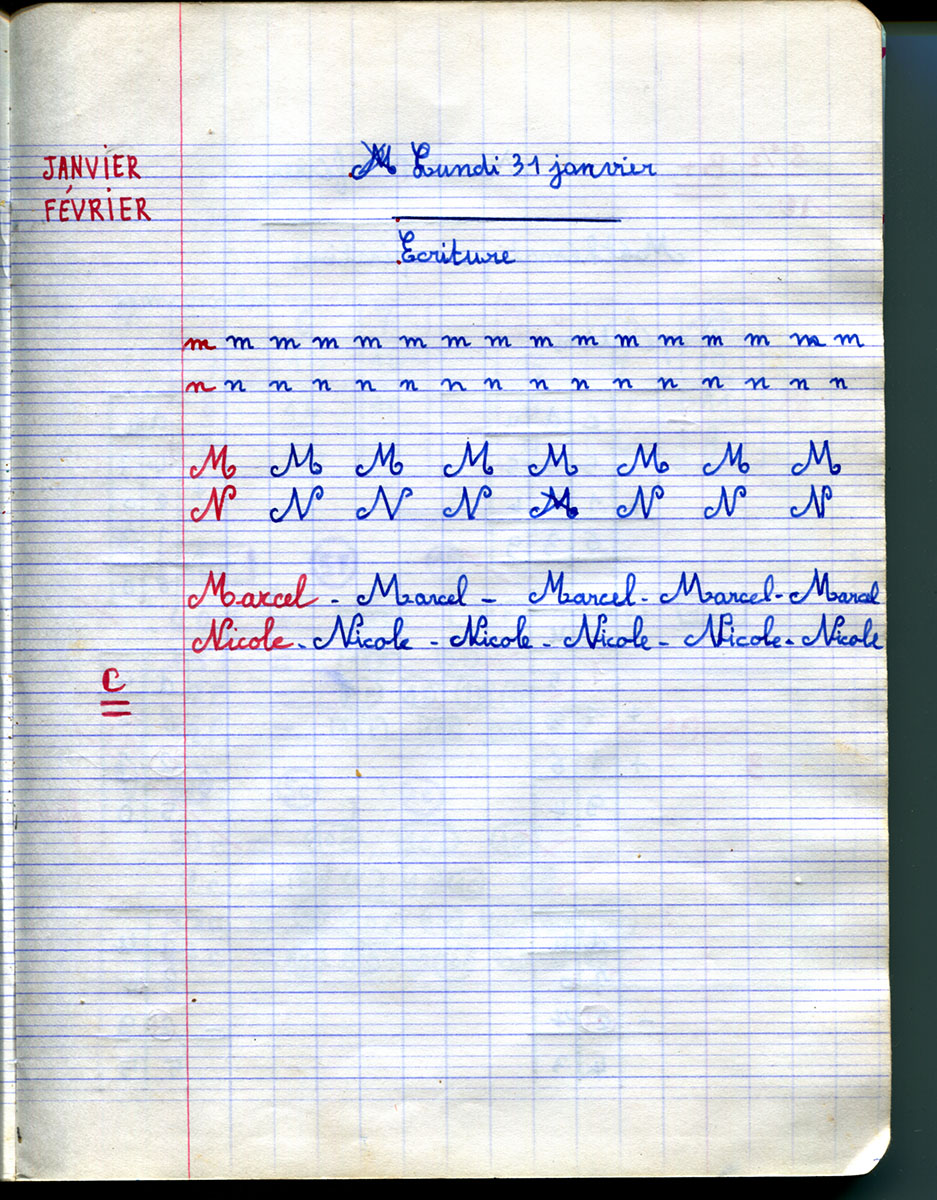 JANVIER
FÉVRIER
Lundi 31 janvier
Ecriture
m m m m m m m m m m m m m m m m
n n n n n n n n n n n n n n n n
M M M M M M M M
N N N N M N N N
Marcel - Marcel - Marcel - Marcel - Marcel
Nicole - Nicole - Nicole - Nicole - Nicole - Nicole
C